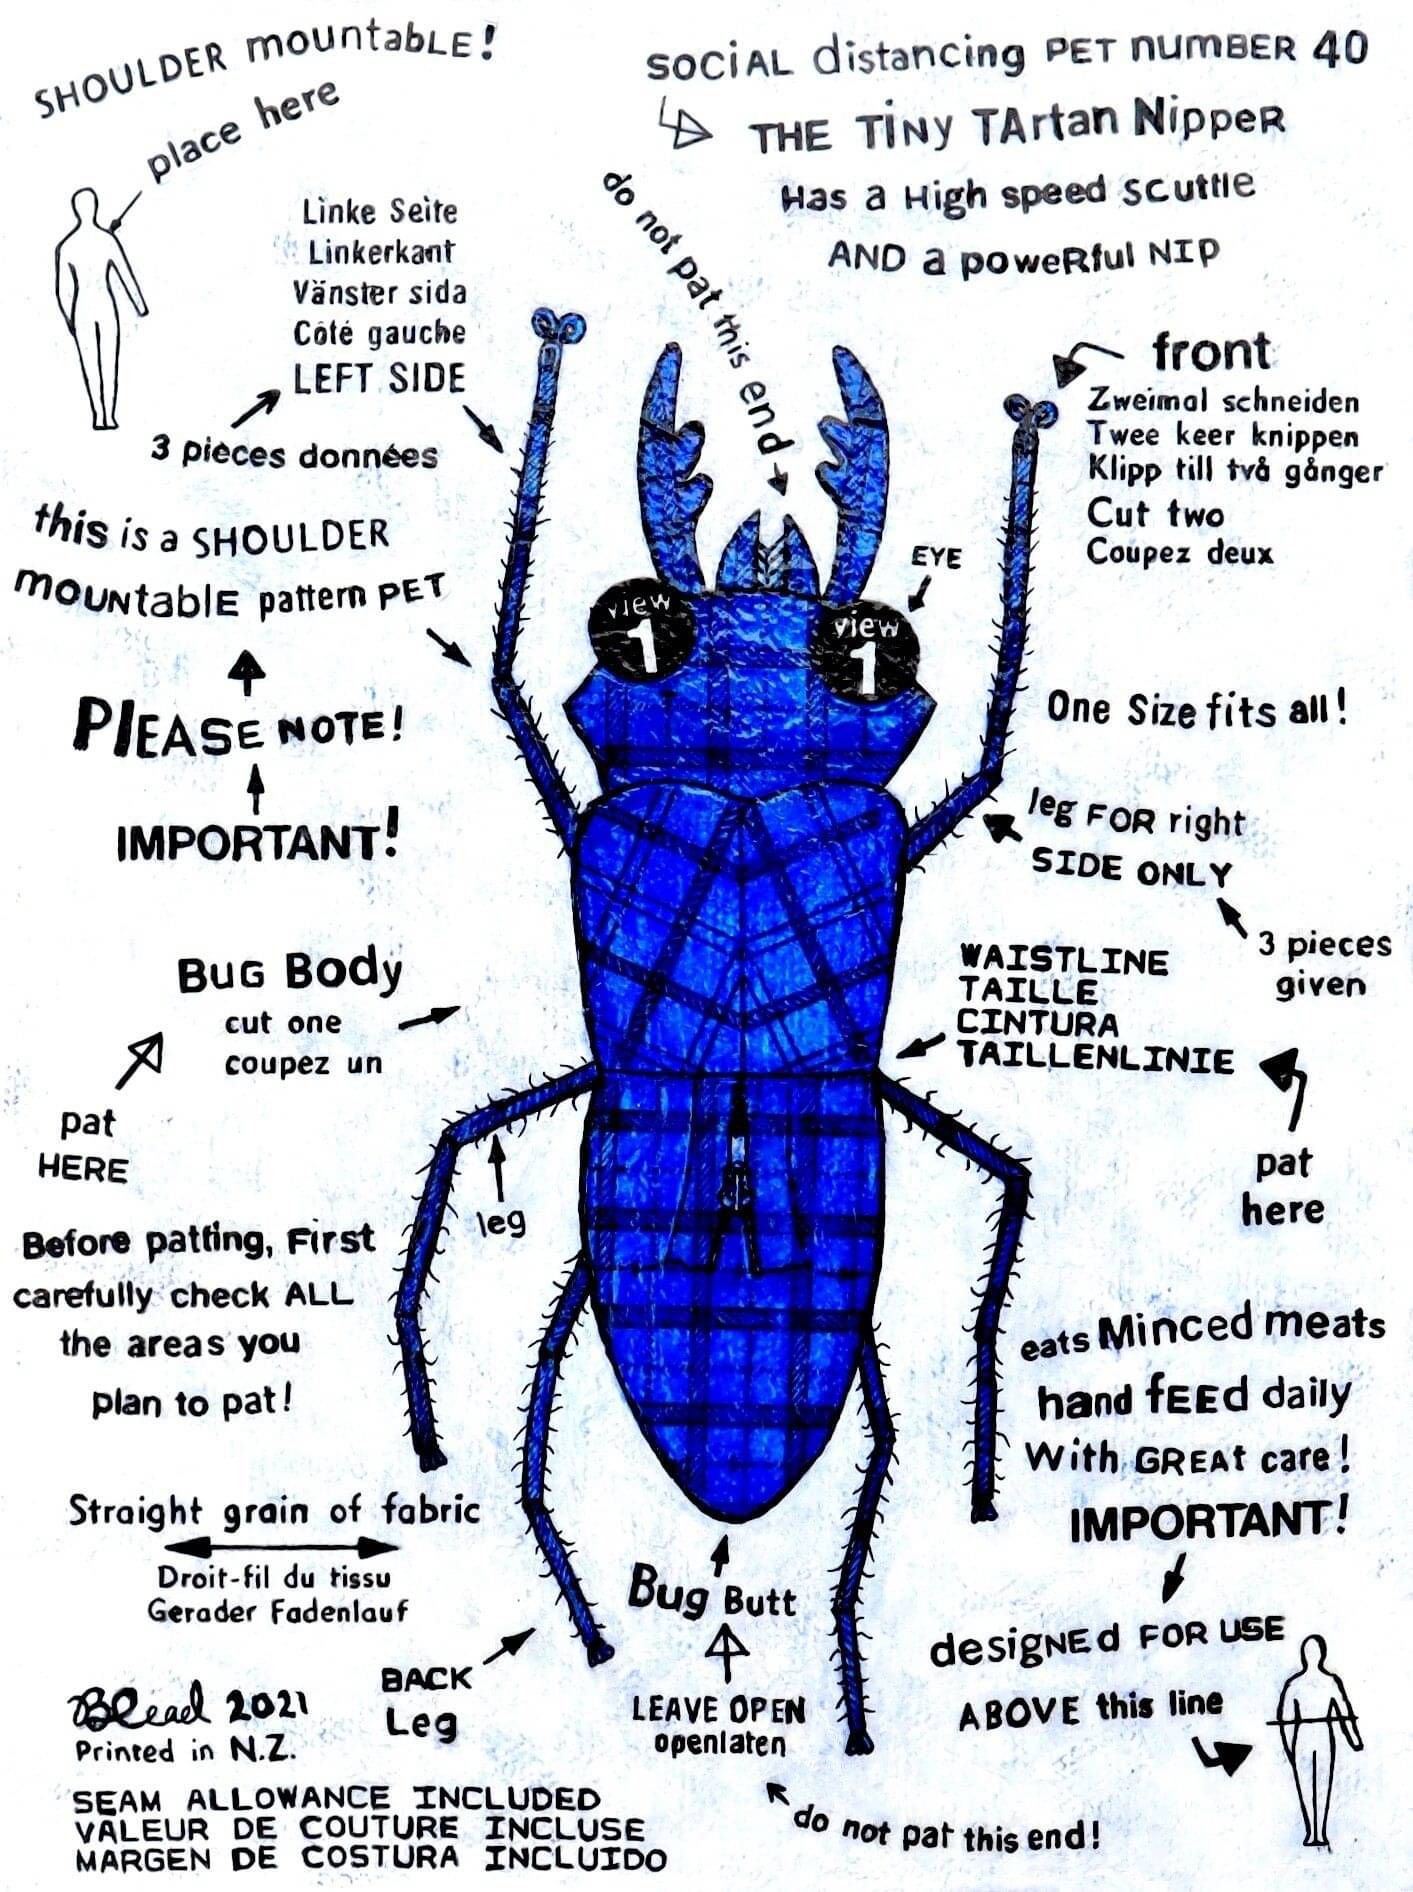 SHOULDER mountabLE!
place here
SOCiAL distancing PET numBER 40
THE TiNy TArtan NippeR
Has a High speed scuttle
AND a poweRful NIP
do not pat this end
Linke Seite
Linkerkant
Vänster sida
Côté gauche
LEFT SIDE
3 pièces données
front
Zweimal schneiden
Twee keer knippen
Klipp till två gånger
Cut two
Coupez deux
this is a SHOULDER
mOUNtablE pattern PET
PlEASE NOTE!
IMPORTANT!
EYE
view
1
view
1
One Size fits all!
leg FOR right
SIDE ONLY
3 pieces
given
BUG Body
cut one
coupez un
pat
HERE
WAISTLINE
TAILLE
CINTURA
TAILLENLINIE
pat
here
leg
Before patting, First
carefully check ALL
the areas you
plan to pat!
eats Minced meats
hand fEEd daily
With GREAt care!
IMPORTANT!
designEd FOR USE
ABOVE this line
Straight grain of fabric
Droit-fil du tissu
Gerader Fadenlauf
Bug Butt
LEAVE OPEN
openlaten
do not pat this end!
BACK
Leg
BRead 2021
Printed in N.Z.
SEAM ALLOWANCE INCLUDED
VALEUR DE COUTURE INCLUSE
MARGEN DE COSTURA INCLUIDO